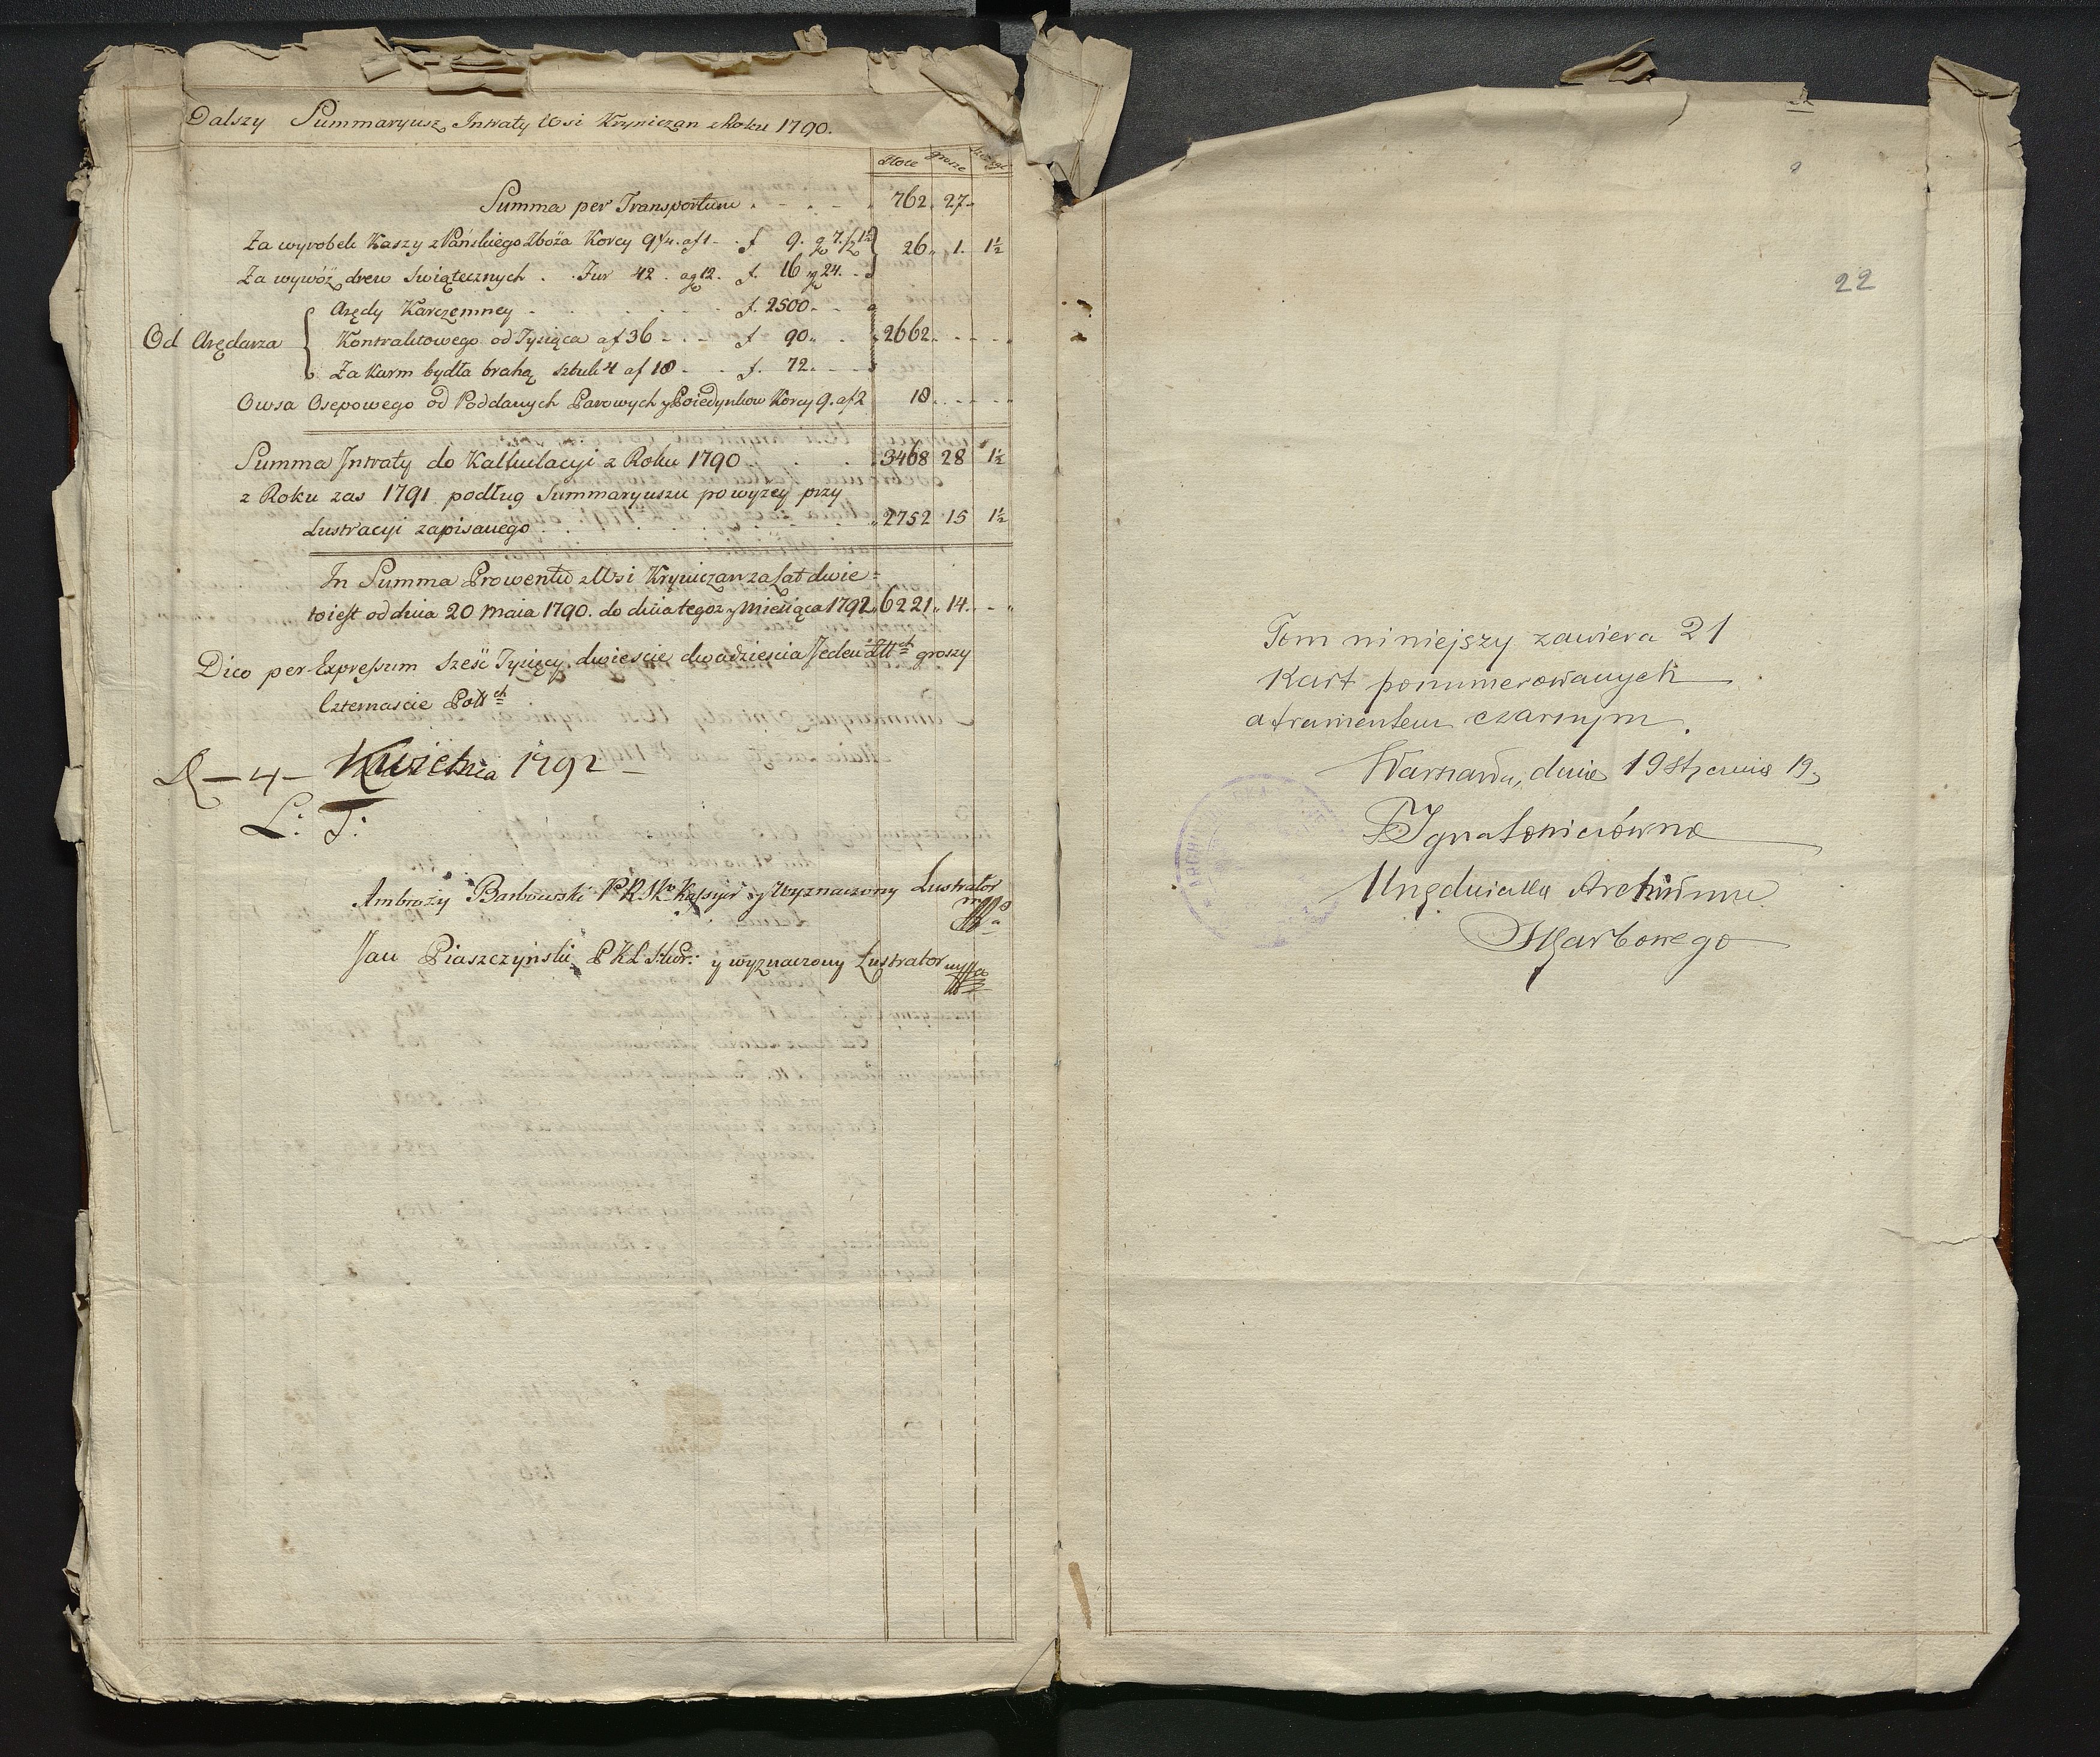 Dalszy Summaryusz Intraty Wsi Kryniczan z Roku 1790.
Złote grosze
Summa per Transportum 762. 27.
Za wyrobek Kaszy z Pańskiego Zboża Korcy 9 1/4 af 1 f 9. gr 7. 1½ 26. 1. 1½
Za wywóz drew Swiątecznych Fur 42. a gr 12. f. 16 gr 24.
Arędy Karczemney f. 2500
Od Arędarza Kontraktowego od Tysiąca af 36 f 90. 2662.
Za Karm bydła brahą sztuk 4 af 18 f. 72.
Owsa Osepowego od Poddanych Parowych y Poiedynkow Korcy 9. af 2 18
Summa Intraty do Kalkulacyi z Roku 1790 3468 28 1½
z Roku zas 1791 podług Summaryuszu powyzey przy
Lustracyi zapisanego 2752 15 1½
In Summa Prowentu z Wsi Kryniczan za Lat dwie
to iest od dnia 20 Maia 1790. do dnia tegoz Miesiąca 1792 6221. 14.
Dico per Expressum Sześć Tysięcy dwiescie dwadziescia Jeden Złłch groszy
Czternascie Pollch
D – 4 – Kwietnia 1792
L: T:
Ambroży Barbowski Kassyer y Wyznaczony Lustrator
mppa
Jan Piaszczyński y wyznaczony Lustrator mppa
22
Tom niniejszy zawiera 21
Kart ponumerowanych
atramentem czarnym.
Warszawa, dnia 19 stycznia 19
Ignatowiczówna
Urzędniczka Archiwum
Skarbowego